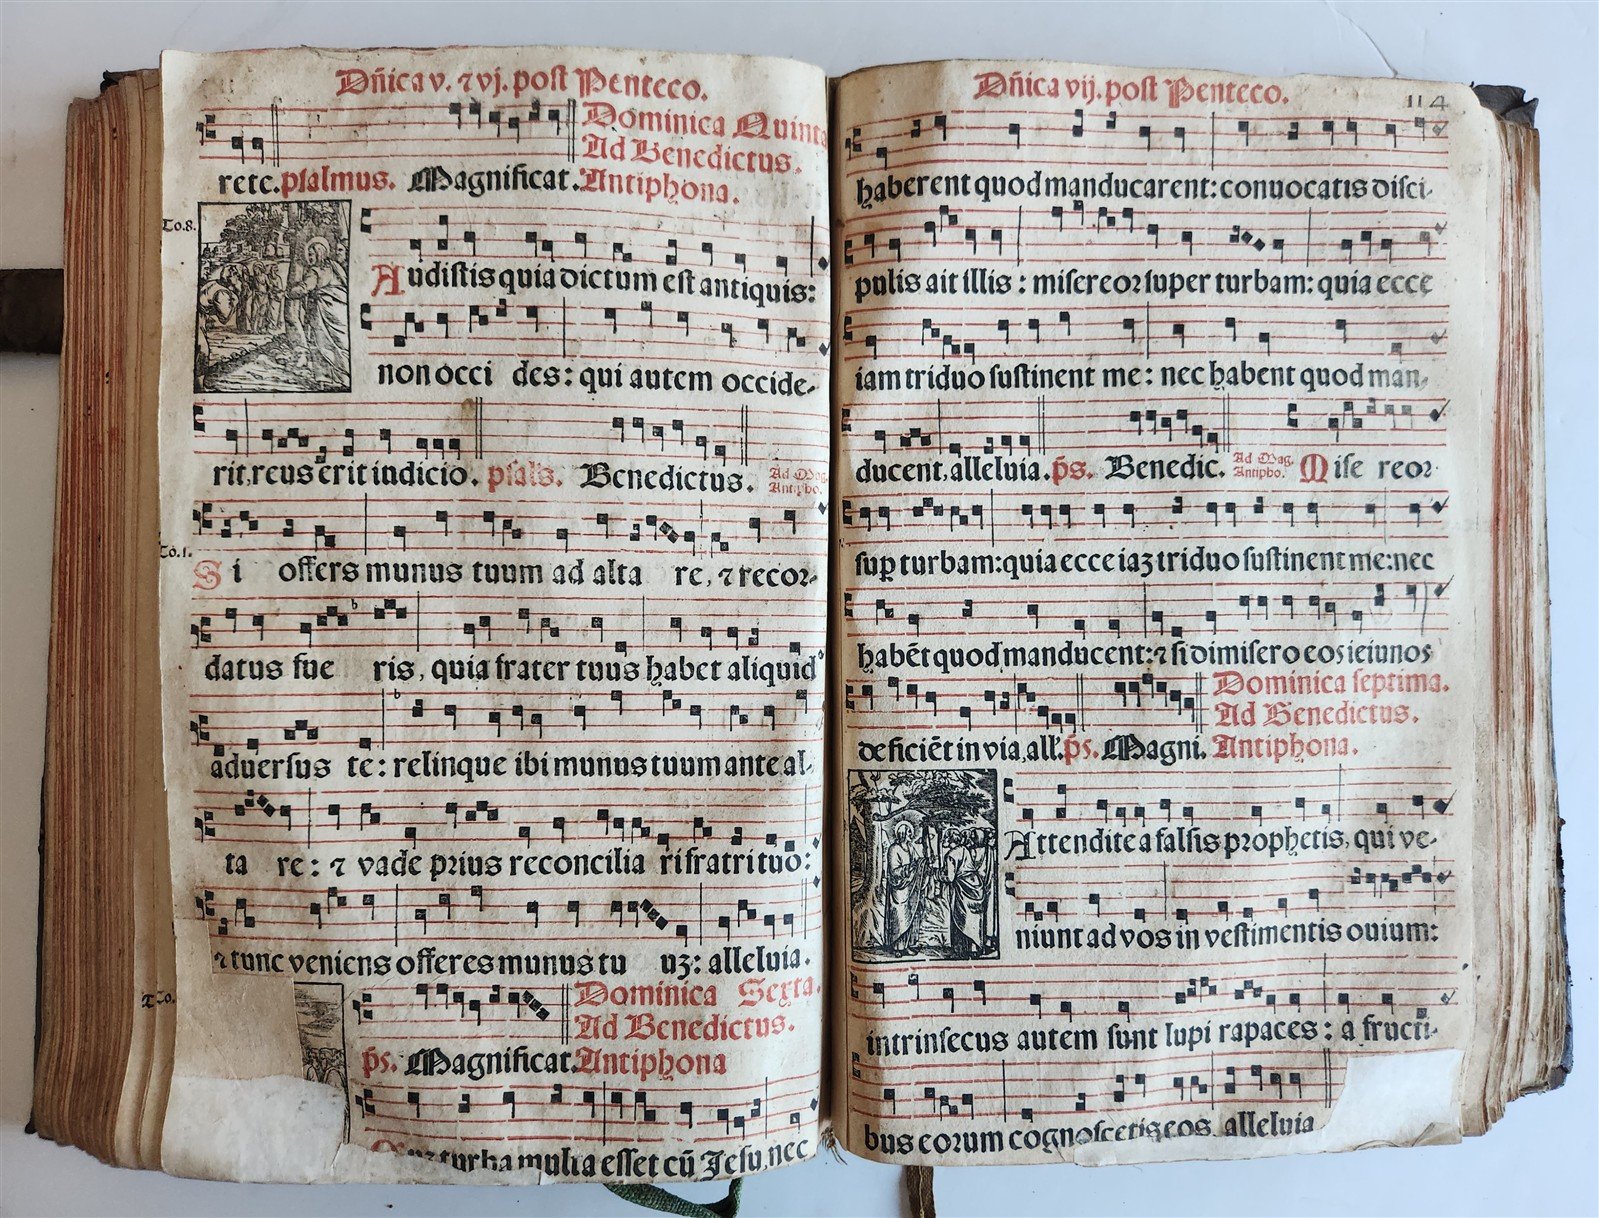 Dñica v. ⁊ vj. post Penteco.
Dominica Quinta
Ad Benedictus.
rete. psalmus. Magnificat. Antiphona.
To.8.
Audistis quia dictum est antiquis:
non occi des: qui autem occide-
rit, reus erit iudicio. psals. Benedictus. Ad Mag. Antipho.
To.1.
Si offers munus tuum ad alta re, ⁊ recor-
datus fue ris, quia frater tuus habet aliquid
aduersus te: relinque ibi munus tuum ante al-
ta re: ⁊ vade prius reconcilia ri fratri tuo:
⁊ tunc veniens offeres munus tu uʒ: alleluia.
To.
Dominica Sexta.
Ad Benedictus.
p̄s. Magnificat. Antiphona
turba multa esset cū Jesu, nec
Dñica vij. post Penteco.
114
haberent quod manducarent: conuocatis disci-
pulis ait illis: misereor super turbam: quia ecce
iam triduo sustinent me: nec habent quod man-
ducent, alleluia. p̄s. Benedic. Ad Mag. Antipho. Mise reor
suꝑ turbam: quia ecce iaʒ triduo sustinent me: nec
habēt quod manducent: ⁊ si dimisero eos ieiunos
Dominica septima.
Ad Benedictus.
deficiēt in via, all'. p̄s. Magni. Antiphona.
Attendite a falsis prophetis, qui ve-
niunt ad vos in vestimentis ouium:
intrinsecus autem sunt lupi rapaces: a fructi-
bus eorum cognoscetis eos, alleluia